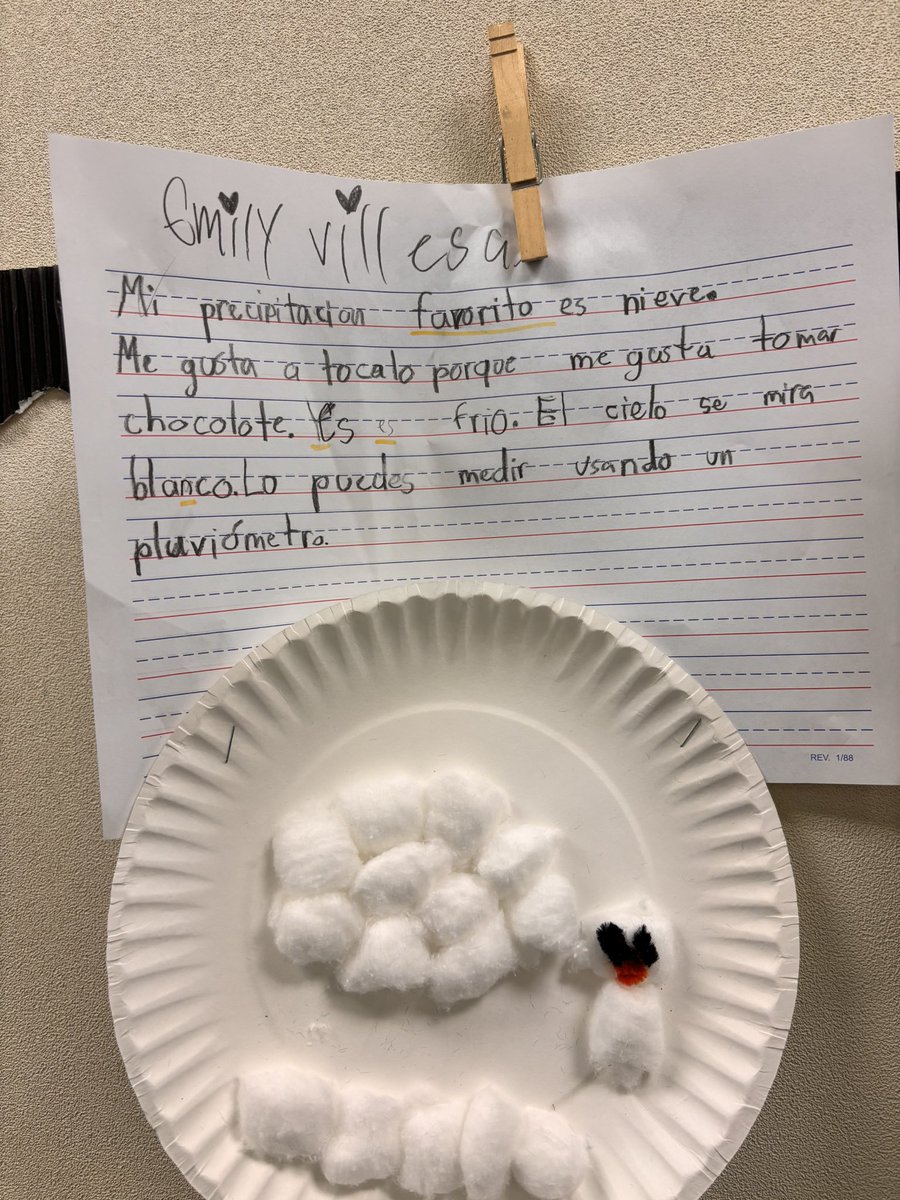 Emily Villesa
Mi precipitacion favorito es nieve.
Me gusta a tocalo porque me gusta tomar
chocolote. Es es frio. El cielo se mira
blanco. Lo puedes medir usando un
pluviómetro.
REV. 1/88